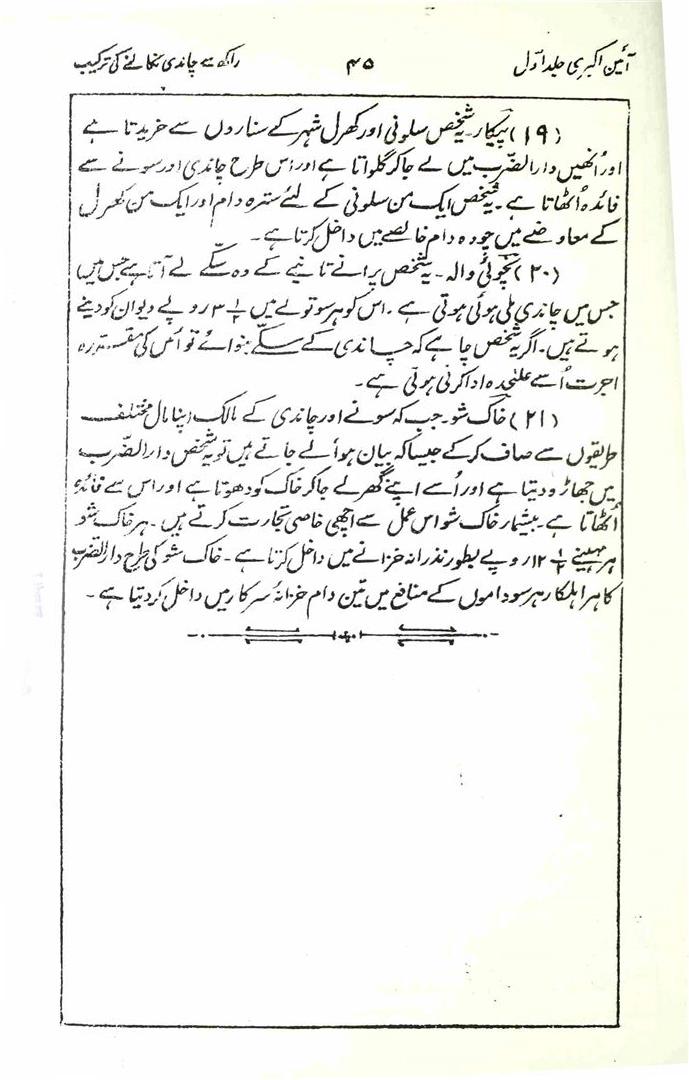 آئین اکبری جلد اوّل
۴۵
راکھ سے چاندی نکالنے کی ترکیب
(۱۹) پیکار۔ یہ شخص سلونی اور کھرل شہر کے سناروں سے خریدتا ہے
اور اُنھیں دارالضرب میں لے جاکر گلواتا ہے اور اس طرح چاندی اور سونے سے
فائدہ اُٹھاتا ہے۔ یہ شخص ایک من سلونی کے لئے سترہ دام اور ایک من کھرل
کے معاوضے میں چودہ دام خالصے میں داخل کرتا ہے۔
(۲۰) نچوئی والہ۔ یہ شخص پرانے تانبے کے وہ سکّے لے آتا ہے جس میں
جس میں چاندی ملی ہوئی ہوتی ہے۔ اس کو ہر سو تولے میں ۳½ روپے دیوان کو دینے
ہوتے ہیں۔ اگر یہ شخص چاہے کہ چاندی کے سکّے بنوائے تو اُس کی مقررہ
اجرت اُسے علٰحدہ ادا کرنی ہوتی ہے۔
(۲۱) خاک شو۔ جب کہ سونے اور چاندی کے مالک اپنا مال مختلف
طریقوں سے صاف کرکے جیسا کہ بیان ہوا لے جاتے ہیں تو یہ شخص دارالضرب
میں جھاڑو دیتا ہے اور اُسے اپنے گھر لے جاکر خاک کو دھوتا ہے اور اس سے فائدہ
اُٹھاتا ہے۔ بیشمار خاک شو اس عمل سے اچھی خاصی تجارت کرتے ہیں۔ ہر خاک شو
ہر مہینے ۱۲½ روپے بطور نذرانہ خزانے میں داخل کرتا ہے۔ خاک شو کی طرح دارالضرب
کا ہر اہلکار ہر سو داموں کے منافع میں تین دام خزانۂ سرکار میں داخل کردیتا ہے۔